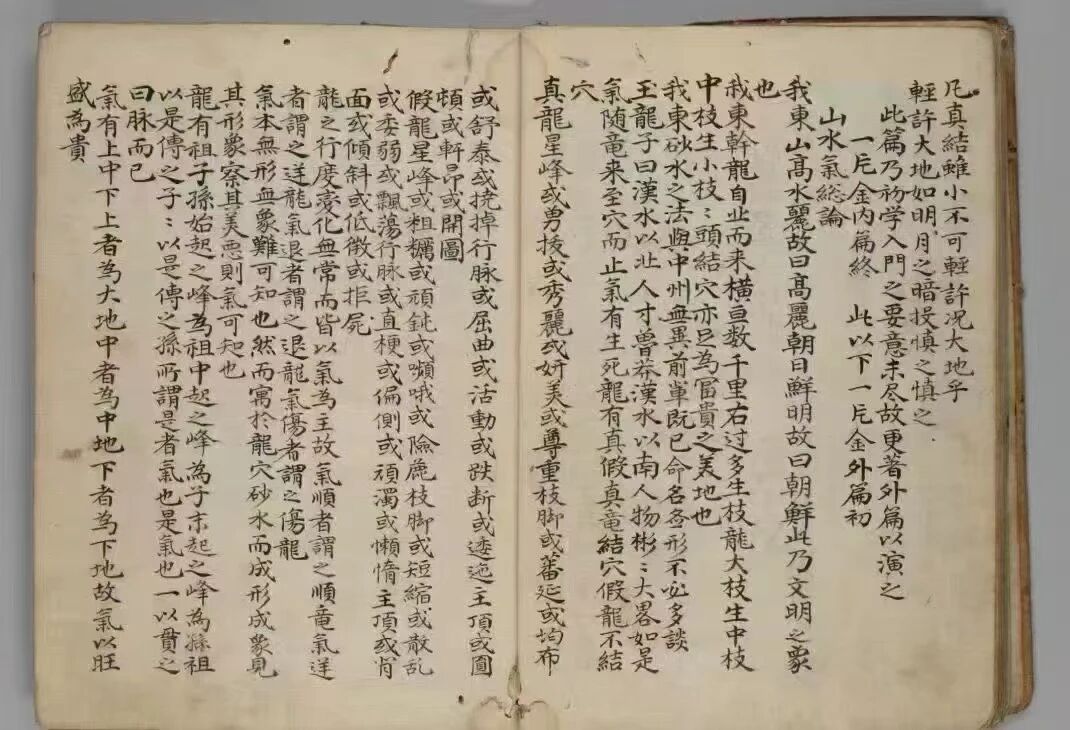 凡真結雖小不可輕許况大地乎
輕許大地如明月之暗投慎之慎之
此篇乃初学入門之要意未尽故更著外篇以演之
一片金内篇終　此以下一片金外篇初
山水氣総論
我東山高水麗故曰高麗朝日鮮明故曰朝鮮此乃文明之象
也
我東幹龍自北而来橫亘数千里右过多生枝龍大枝生中枝
中枝生小枝〻頭結穴亦足為冨貴之美地也
我東砂水之法與中州無異前軰既已命名各形不必多談
玉龍子曰漢水以北人才魯莽漢水以南人物彬〻大畧如是
氣随竜来至穴而止氣有生死龍有真假真竜結穴假龍不結
穴
真龍星峰或勇拔或秀麗或妍美或尊重枝脚或蕃延或均布
或舒泰或挠掉行脉或屈曲或活動或跌断或逶迤主頂或圓
頓或軒昂或開圖
假龍星峰或粗糲或頑鈍或嚬哦或險麁枝脚或短縮或散乱
或委弱或飄蕩行脉或直梗或偏側或頑濁或懶惰主頂或肖
面或傾斜或低微或拒屍
龍之行度變化無常而皆以氣為主故氣順者謂之順竜氣逆
者謂之逆龍氣退者謂之退龍氣傷者謂之傷龍
氣本無形無象難可知也然而寓於龍穴砂水而成形成象見
其形象察其美悪則氣可知也
龍有祖子孫始起之峰為祖中起之峰為子末起之峰為孫祖
以是傳之子〻以是傳之孫所謂是者氣也是氣也一以貫之
曰脉而已
氣有上中下上者為大地中者為中地下者為下地故氣以旺
盛為貴